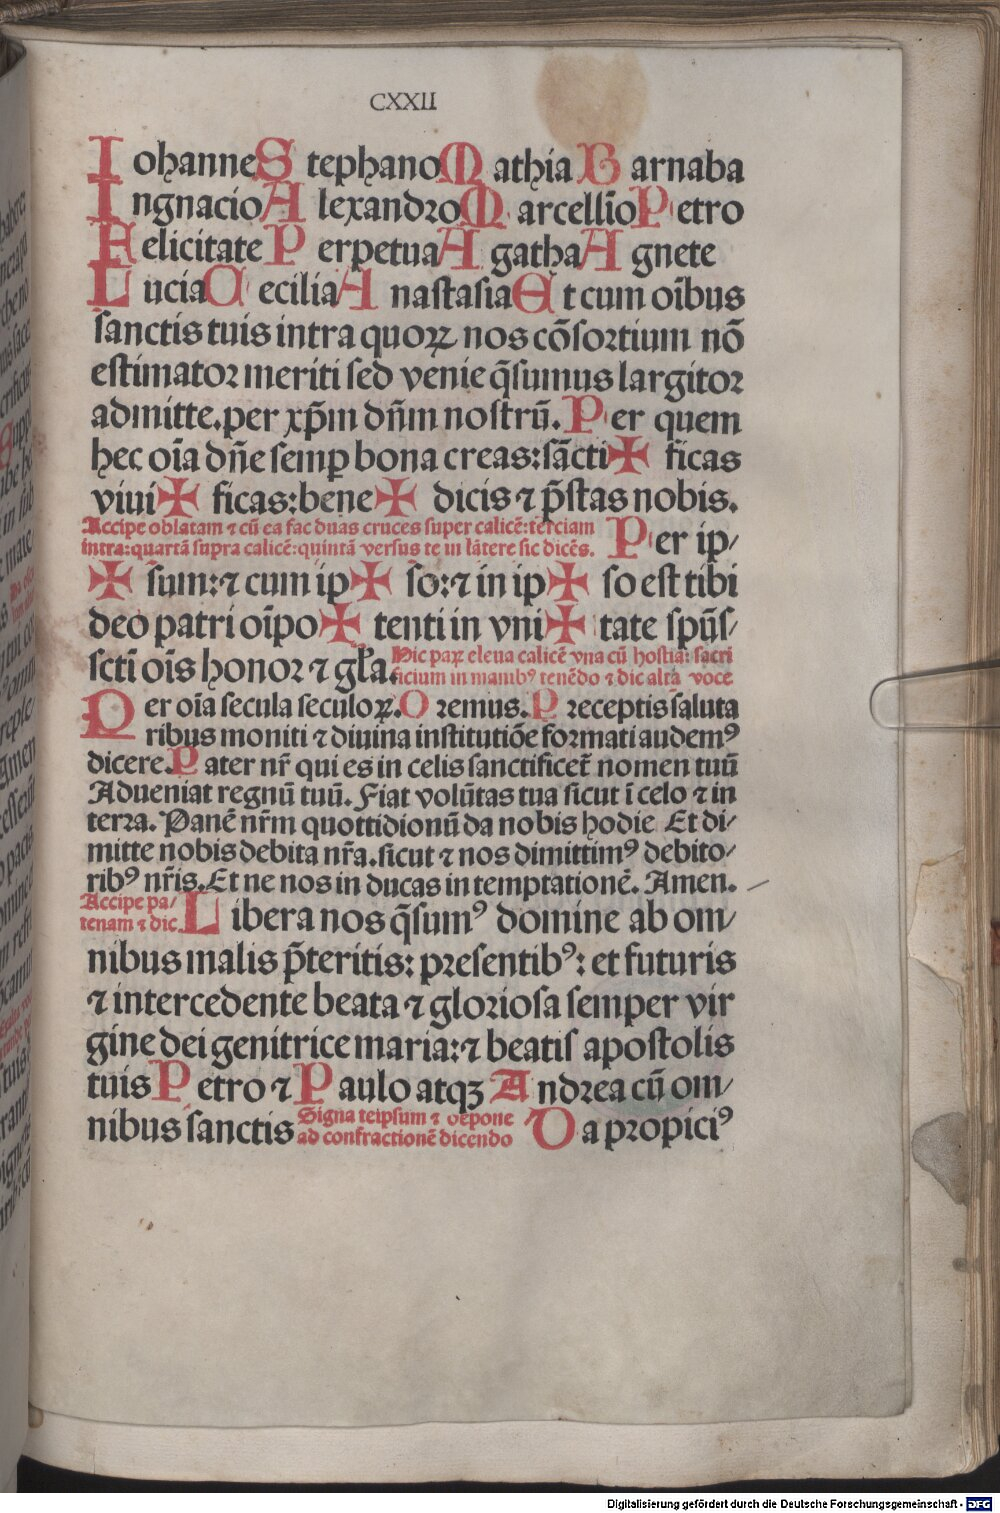 CXXII
Iohanne Stephano Mathia Barnaba
Ingnacio Alexandro Marcellīo Petro
Felicitate Perpetua Agatha Agnete
Lucia Cecilia Anastasia Et cum oībus
sanctis tuis intra quoꝝ nos cōsortium nō
estimator meriti sed venie q̄sumus largitor
admitte.per xp̄m dn̄m nostrū. Per quem
hec oīa dn̄e semꝑ bona creas:sācti✠ficas
viui✠ficas:bene✠dicis ⁊ p̄stas nobis.
Accipe oblatam ⁊ cū ea fac duas cruces super calicē:terciam
intra:quartā supra calicē:quintā versus te in lātere sic dicēs.
Per ip/
✠sum:⁊ cum ip✠so:⁊ in ip✠so est tibi
deo patri oīpo✠tenti in vni✠tate spūs/
scti oīs honor ⁊ gl̄a.
Hic paꝝ eleua calicē vna cū hostia: sacri
ficium in manibꝰ tenēdo ⁊ dic alta voce
Per oīa secula seculoꝝ. Oremus. Preceptis saluta
ribus moniti ⁊ diuina institutiōe formati audemꝰ
dicere. Pater nr̄ qui es in celis sanctificet̄ nomen tuū
Adueniat regnū tuū. Fiat volūtas tua sicut ī celo ⁊ in
terra. Panē nr̄m quottidionū da nobis hodie Et di/
mitte nobis debita nr̄a.sicut ⁊ nos dimittimꝰ debito/
ribꝰ nr̄is.Et ne nos in ducas in temptationē. Amen.
Accipe pa/
tenam ⁊ dic.
Libera nos q̄sumꝰ domine ab om/
nibus malis p̄teritis: presentibꝰ: et futuris
⁊ intercedente beata ⁊ gloriosa semper vir
gine dei genitrice maria:⁊ beatis apostolis
tuis Petro ⁊ Paulo atqꝫ Andrea cū om/
nibus sanctis
Signa teipsum ⁊ depone
ad confractionē dicendo
Da propiciꝰ
Digitalisierung gefördert durch die Deutsche Forschungsgemeinschaft - DFG